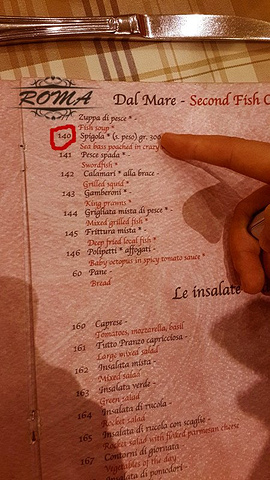 ROMA
Dal Mare - Second Fish
Zuppa di pesce * -
Fish soup *
140 Spigola * (s. peso) gr. 300
Sea bass poached in crazy
141 Pesce spada * -
Swordfish *
142 Calamari * alla brace -
Grilled squid *
143 Gamberoni * -
King prawns *
144 Grigliata mista di pesce * -
Mixed grilled fish *
145 Frittura mista * -
Deep fried local fish *
146 Polipetti * affogati -
Baby octopus in spicy tomato sauce *
60 Pane -
Bread
Le insalate
160 Caprese -
Tomatoes, mozzarella, basil
161 Tutto Pranzo capricciosa -
Large mixed salad
162 Insalata mista -
Mixed salad
163 Insalata verde -
Green salad
164 Insalata di rucola -
Rocket salad
165 Insalata di rucola con scaglie -
Rocket salad with flaked parmesan cheese
167 Contorni di giornata
Vegetables of the day
Insalata di pomodori -